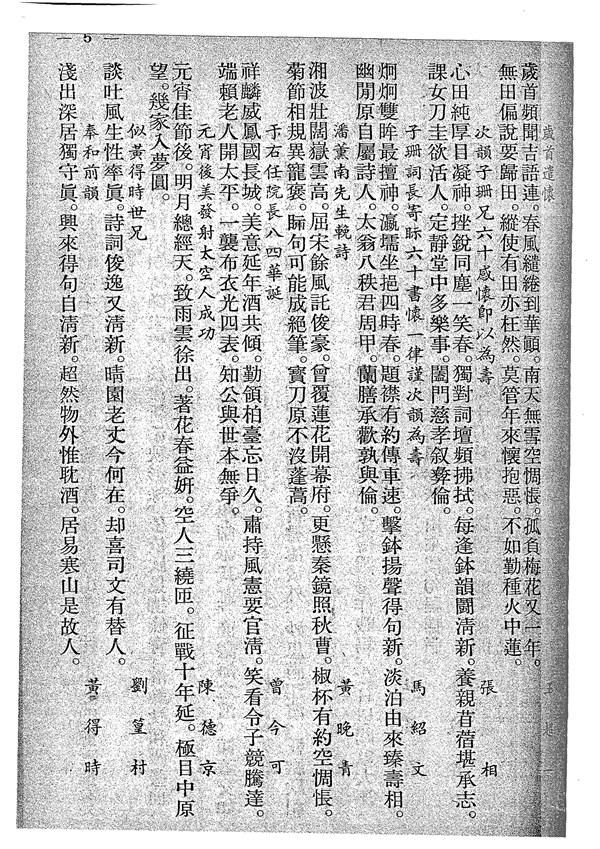 — 5 —
歲首遣懷　王超一
歲首頻聞吉語連。春風繾綣到華顚。南天無雪空惆悵。孤負梅花又一年。
無田偏說要歸田。縱使有田亦枉然。莫管年來懷抱惡。不如勤種火中蓮。
次韻子珊兄六十感懷即以為壽　張相
心田純厚目凝神。挫銳同塵一笑春。獨對詞壇頻拂拭。每逢鉢韻鬪清新。養親苜蓿堪承志。
課女刀圭欲活人。定靜堂中多樂事。闔門慈孝叙彝倫。
子珊詞長寄眎六十書懷一律謹次韻為壽　馬紹文
炯炯雙眸最擅神。瀛壖坐挹四時春。題襟有約傳車速。擊鉢揚聲得句新。淡泊由來臻壽相。
幽閒原自屬詩人。太翁八秩君周甲。蘭膳承歡孰與倫。
潘薰南先生輓詩　黃晚青
湘波壯闊嶽雲高。屈宋餘風託俊豪。曾覆蓮花開幕府。更懸秦鏡照秋曹。椒杯有約空惆悵。
菊節相規異寵褒。晞句可能成絕筆。寶刀原不沒蓬蒿。
于右任院長八四華誕　曾今可
祥麟威鳳國長城。美意延年酒共傾。勤領柏臺忘日久。肅持風憲要官清。笑看令子競騰達。
端賴老人開太平。一襲布衣光四表。知公與世本無爭。
元宵後美發射太空人成功　陳德京
元宵佳節後。明月總經天。致雨雲徐出。著花春益妍。空人三繞匝。征戰十年延。極目中原
望。幾家入夢圓。
似黃得時世兄　劉篁村
談吐風生性率眞。詩詞俊逸又淸新。晴園老丈今何在。却喜司文有替人。
奉和前韻　黃得時
淺出深居獨守眞。興來得句自淸新。超然物外惟耽酒。居易寒山是故人。